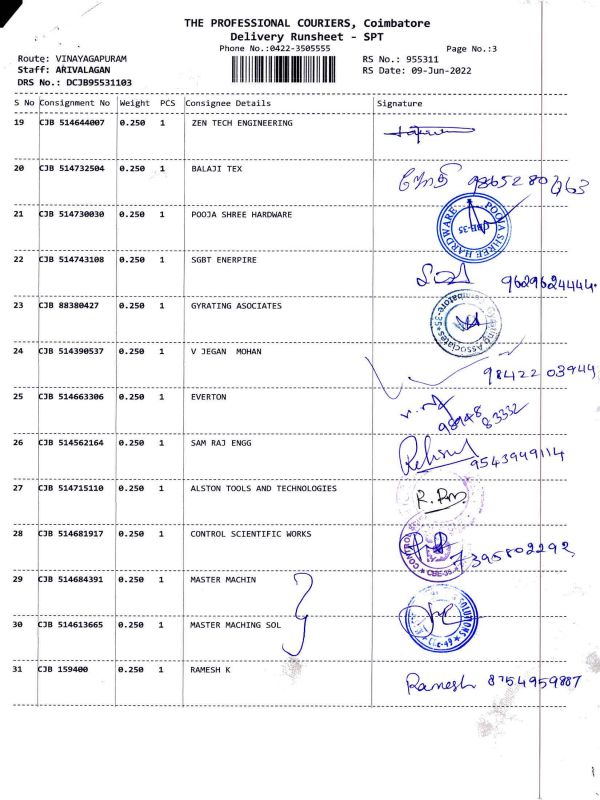 THE PROFESSIONAL COURIERS, Coimbatore
Delivery Runsheet - SPT
Phone No.:0422-3505555
Page No.:3
Route: VINAYAGAPURAM
RS No.: 955311
Staff: ARIVALAGAN
RS Date: 09-Jun-2022
DRS No.: DCJB95531103
S No Consignment No Weight PCS Consignee Details Signature
19 CJB 514644007 0.250 1 ZEN TECH ENGINEERING
20 CJB 514732504 0.250 1 BALAJI TEX
21 CJB 514730030 0.250 1 POOJA SHREE HARDWARE POOJA SHREE HARDWARE CBE-35
22 CJB 514743108 0.250 1 SGBT ENERPIRE 9629624444.
23 CJB 88380427 0.250 1 GYRATING ASOCIATES Gyrating Associates Coimbatore-35
24 CJB 514390537 0.250 1 V JEGAN MOHAN 98422 03944
25 CJB 514663306 0.250 1 EVERTON 98948 83332
26 CJB 514562164 0.250 1 SAM RAJ ENGG 9543949114
27 CJB 514715110 0.250 1 ALSTON TOOLS AND TECHNOLOGIES
28 CJB 514681917 0.250 1 CONTROL SCIENTIFIC WORKS CBE-35 7395802292
29 CJB 514684391 0.250 1 MASTER MACHIN
30 CJB 514613665 0.250 1 MASTER MACHING SOL SOLUTIONS
31 CJB 159400 0.250 1 RAMESH K Ramesh 8754959887